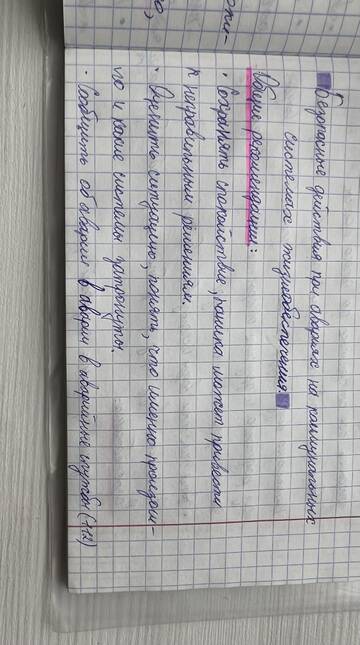 Безопасные действия при авариях на коммунальных
системах жизнеобеспечения
Общие рекомендации:
· Сохранять спокойствие, паника может привести
к неправильным решениям.
· Оценить ситуацию, понять, что именно произош-
ло и какие системы затронуты.
· Сообщить об аварии в аварии в аварийные службы (112)